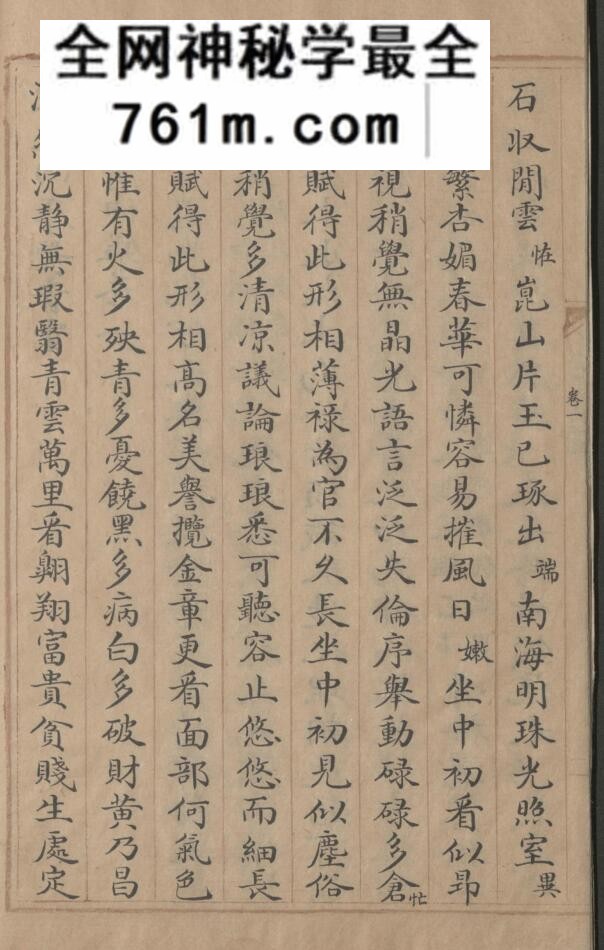 全网神秘学最全
761m.com
卷一
石収閒雲怪崑山片玉已琢出端南海明珠光照室異
繁杏媚春華可憐容易摧風日嫩坐中初看似昻
視稍覺無晶光語言泛泛失倫序舉動碌碌多倉忙
賦得此形相薄禄為官不久長坐中初見似塵俗
稍覺多清凉議論琅琅悉可聽容止悠悠而細長
賦得此形相髙名美譽攬金章更看面部何氣色
惟有火多殃青多憂饒黑多病白多破財黄乃昌
沉静無瑕翳青雲萬里看翺翔富貴貧賤生處定